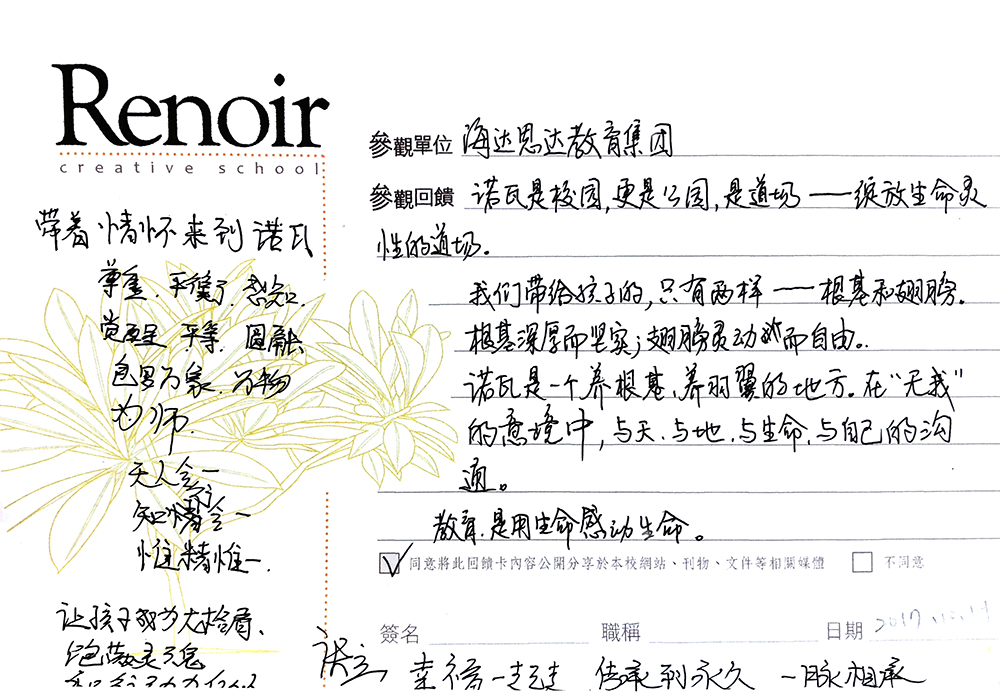 Renoir
creative school
參觀單位 海达思达教育集团
參觀回饋 诺瓦是校园,更是公园,是道场——绽放生命灵
性的道场。
我们带给孩子的,只有两样——根基和翅膀。
根基深厚而坚实;翅膀灵动而自由。
诺瓦是一个养根基、养羽翼的地方。在“无我”
的意境中,与天、与地、与生命、与自己的沟
通。
教育是用生命感动生命。
同意將此回饋卡內容公開分享於本校網站、刊物、文件等相關媒體 不同意
簽名 職稱 日期 2017.
带着情怀来到诺瓦
尊重.平衡.
觉醒 平等 圆融
包罗万象.万物
为师.
天人合一
知情合一
惟精惟一.
让孩子成为大格局、
饱满灵魂
幸福一起走 传承到永久 一脉相承